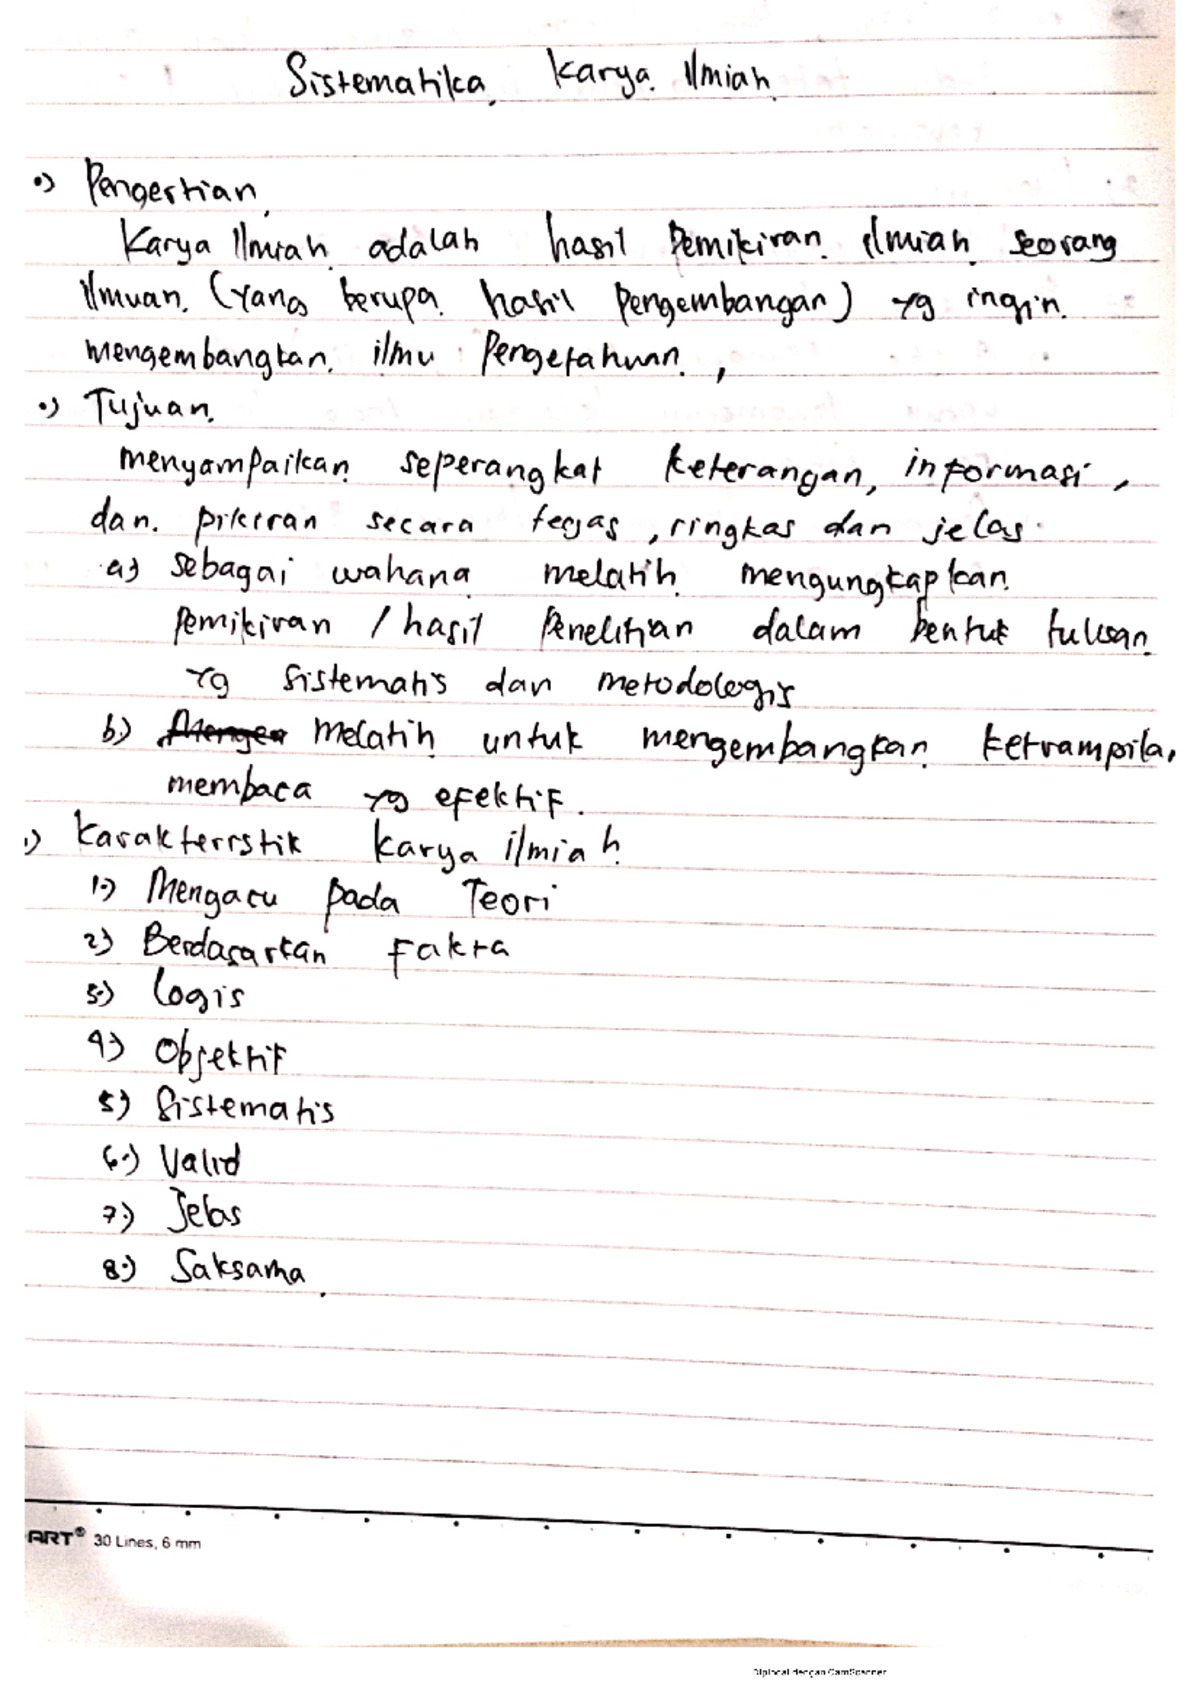 Sistematika Karya Ilmiah
•) Pengertian
Karya Ilmiah adalah hasil Pemikiran ilmiah seorang
Ilmuan (Yang berupa hasil pengembangan) yg ingin
mengembangkan ilmu Pengetahuan ,
•) Tujuan
menyampaikan seperangkat keterangan, informasi ,
dan pikiran secara tegas , ringkas dan jelas.
a) sebagai wahana melatih mengungkapkan
pemikiran / hasil Penelitian dalam bentuk tulisan
yg sistematis dan metodologis
b) Mengem Melatih untuk mengembangkan ketrampila
membaca yg efektif.
•) Karakterrstik karya ilmiah
1.) Mengacu pada Teori
2) Berdasarkan Fakta
3.) Logis
4) Objektif
5) Sistematis
6.) Valid
7.) Jelas
8.) Saksama
ART® 30 Lines, 6 mm
Dipindai dengan CamScanner